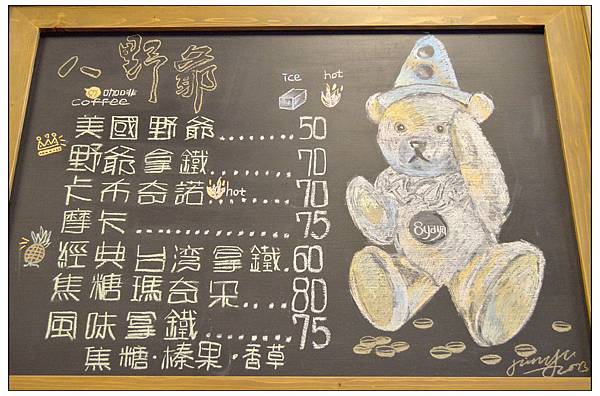 八野爺
咖啡
coffee
ice hot
美國野爺........50
野爺拿鐵........70
卡布奇諾 hot...70
摩卡..............75
經典台湾拿鐵.60
焦糖瑪奇朵.....80
風味拿鐵........75
焦糖·榛果·香草
8yaya
2013